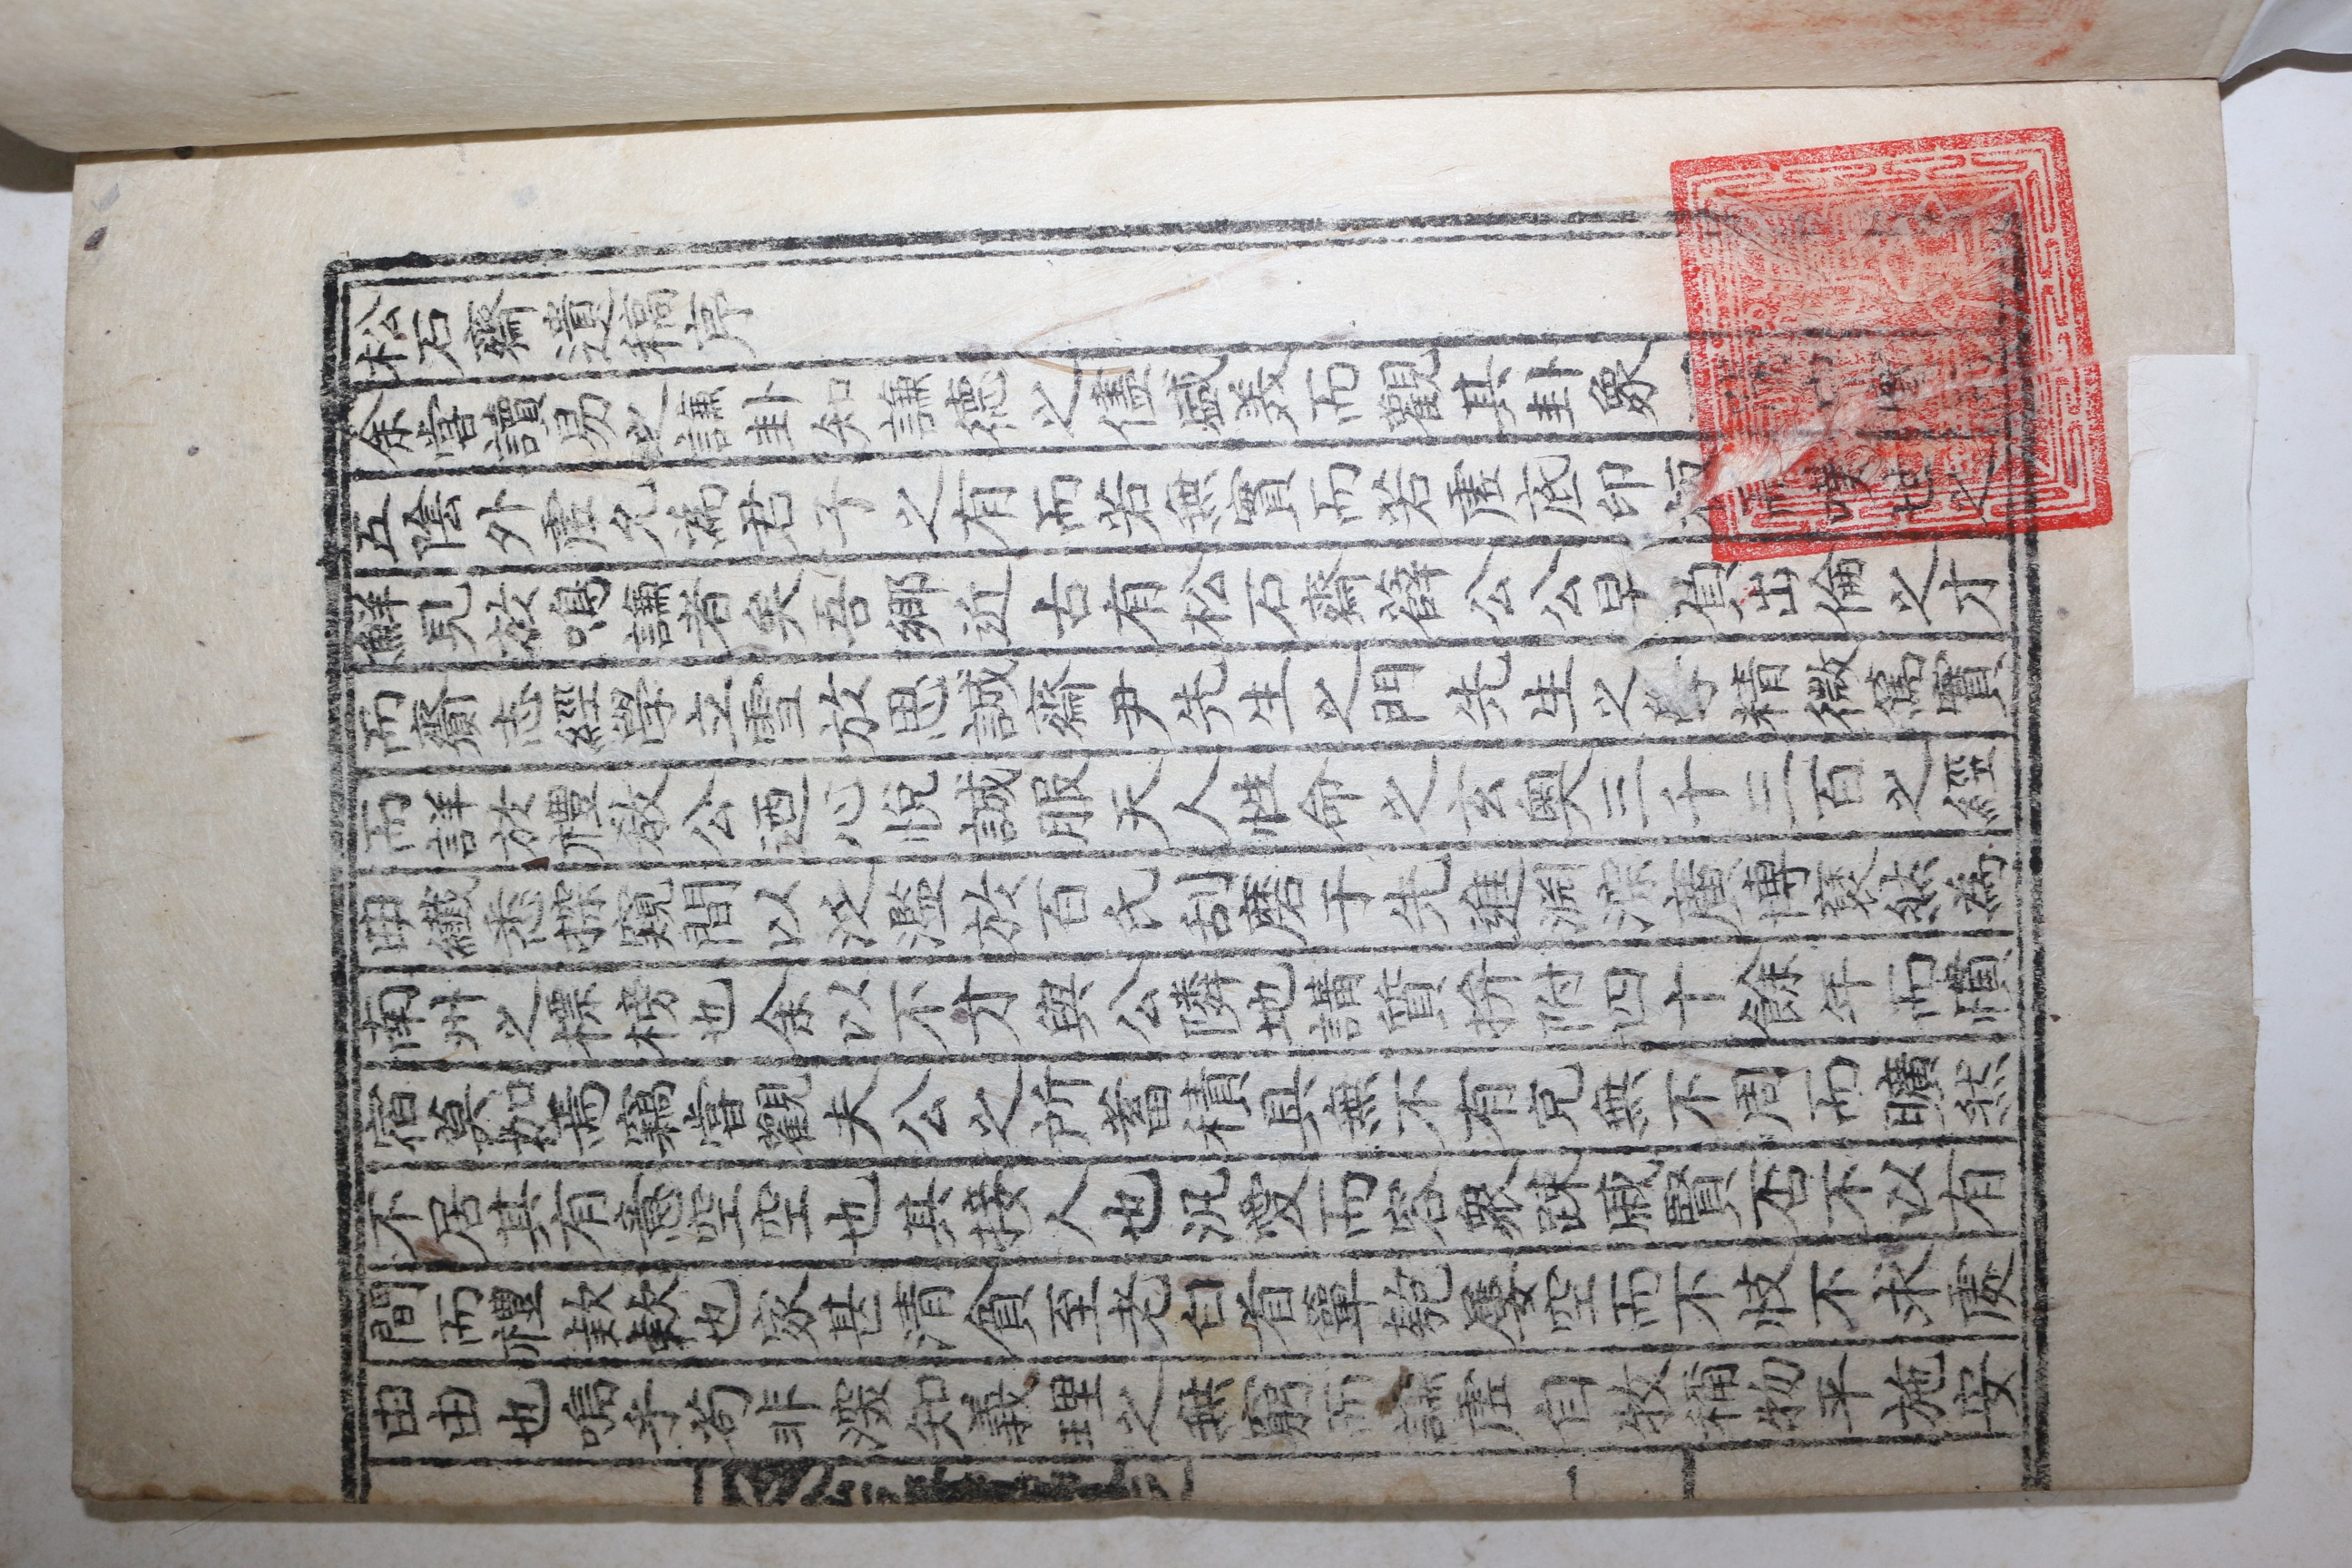 松石齋遺稿序
余嘗讀易之謙卦知謙德之儘盛美而觀其卦象一陽
五陰外虛允爲君子之有而若無實而若虛底印 嘆世之
鮮見於鳴謙者矣吾鄉近古有松石齋薛公公早負出倫之才
而齎志經學立雪於思誠齋尹先生之門先生之學精微篤實
而詳於禮敎公迺心悅誠服天人性命之玄奧三千三百之經
曲纖悉探窺間以泛濫於百氏刮磨于先進淵深廣博褎然爲
南州之標榜也余以不才與公隣地講質拚附四十餘年而慣
宿莫如焉竊嘗觀夫公之所蓄積具無不有克無不周而曠然
不居其有意空空也其接人也汎愛而容衆踈戚賢否不以有
間而禮款款也家甚清貧至老白首簞匏屢空而不忮不求處
由由也嗚乎苟非深知義理之無窮而謙虛自牧稱物平施安
一